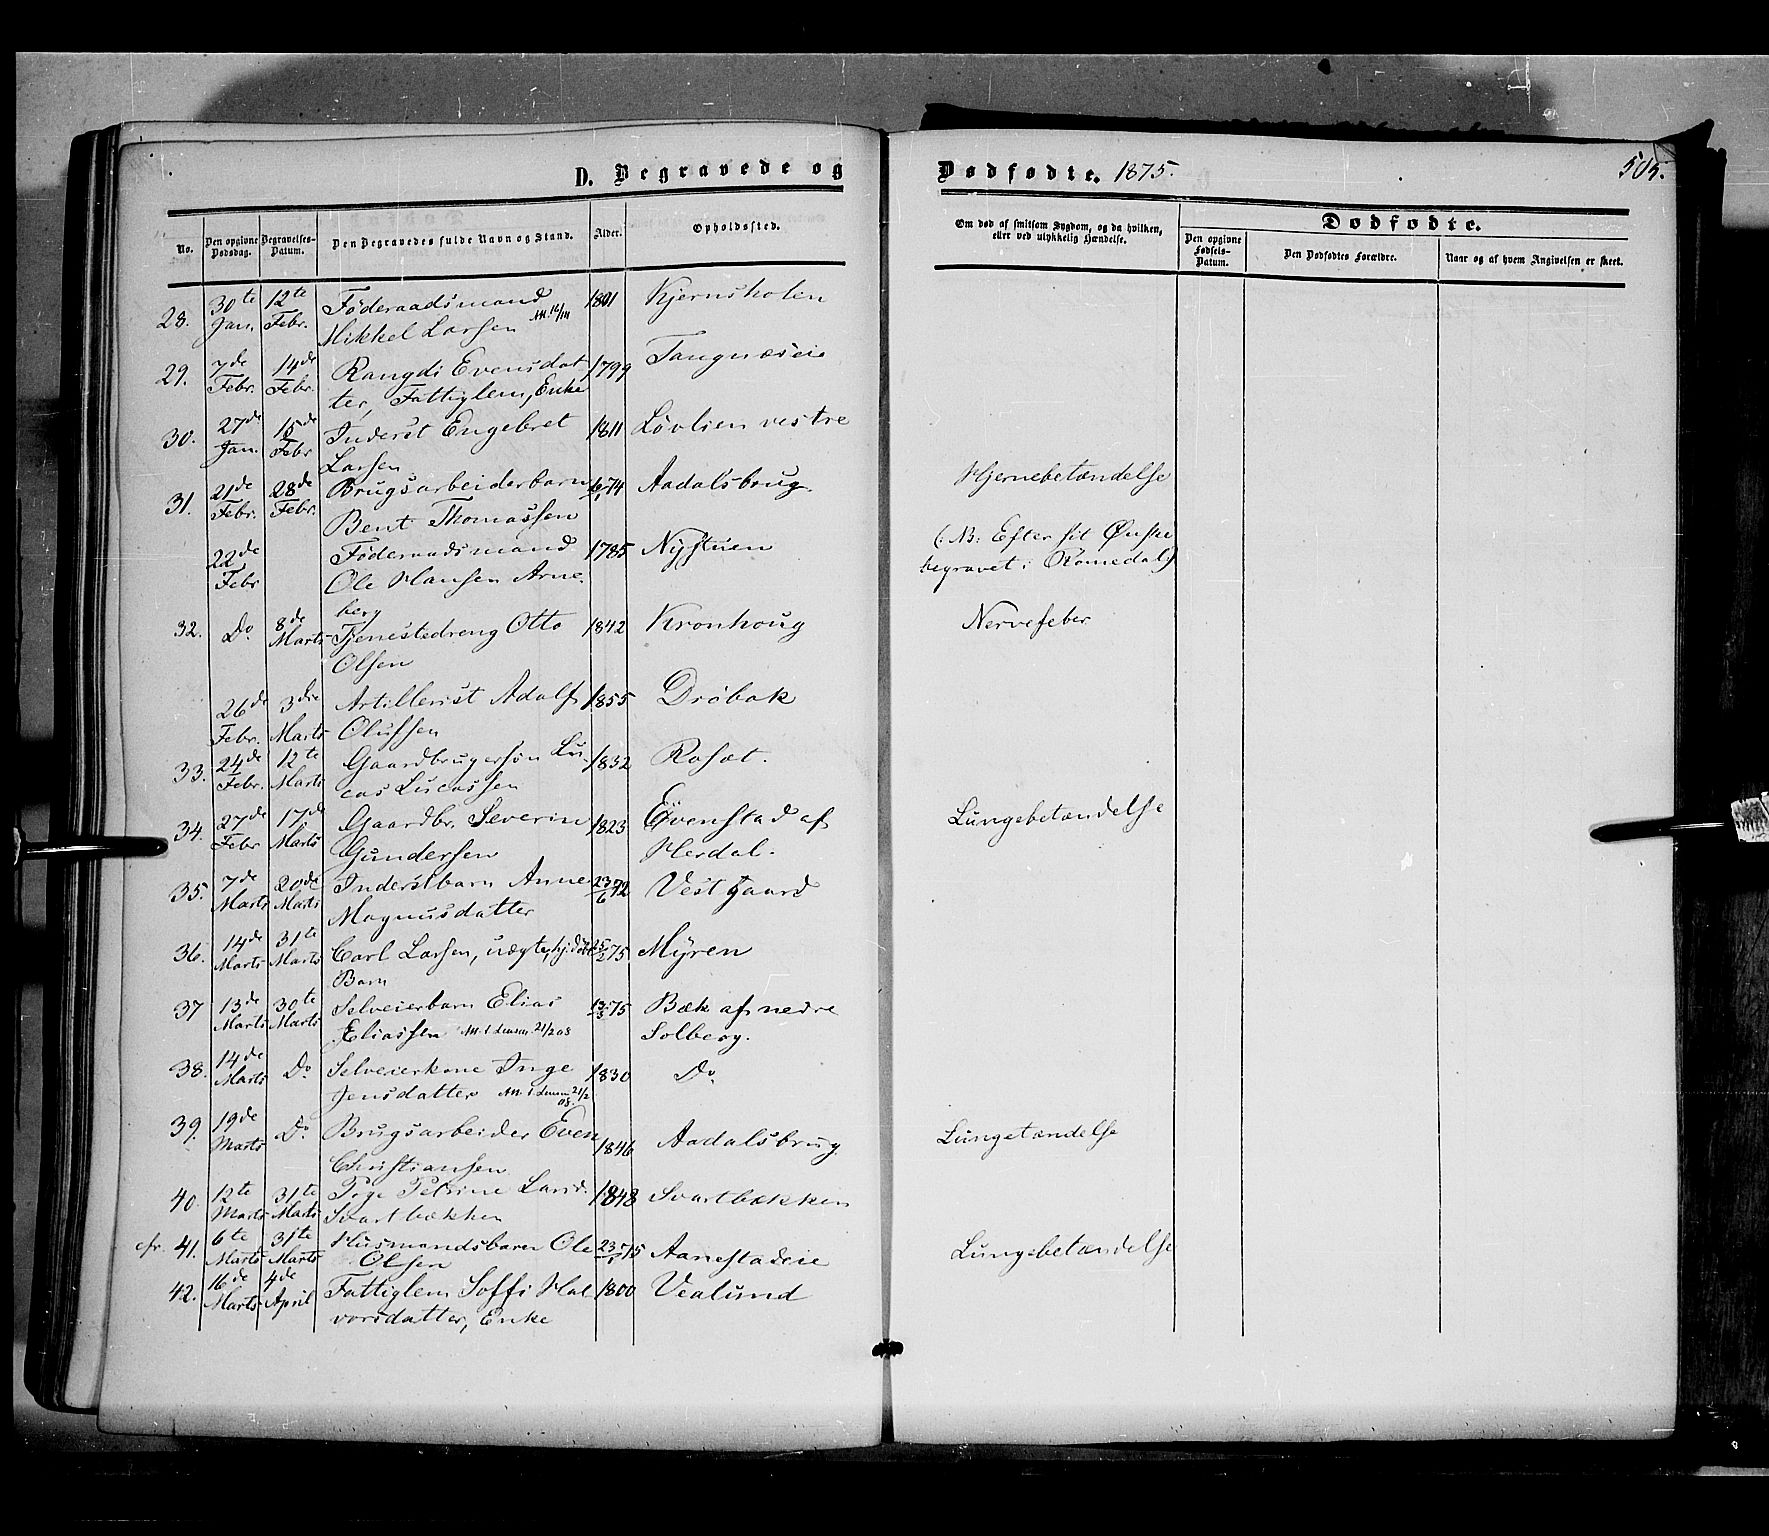 D. Begravede og
Dødfødte. 1875.
505.
No.
Den opgivne Dødsdag.
Begravelses-Datum.
Den Begravedes fulde Navn og Stand.
Alder.
Opholdssted.
Om død af smitsom Sygdom, og da hvilken, eller ved ulykkelig Hændelse.
Dødfødte.
Den opgivne Fødsels-Datum.
Den Dødfødtes Forældre.
Naar og af hvem Angivelsen er skeet.
28. 30te Jan. 12te Febr. Föderaadsmand 1801 Kjernsholen
Mikkel Larsen
29. 7de Febr. 14de Febr. Rangdi Evensdat 1799 Tangnæseie
ter, Fattiglem, Enke
30. 27de Jan. 15de Febr Inderst Engebret 1811 Lövlien vestre
Larsen
31. 21de Febr. 28de Febr. Brugsarbeiderbarn 74 Aadalsbrug. Hjernebetændelse
Bent Thomassen
22de Febr Föderaadsmand 1785 Nystuen (: NB: Efter sit Ønske
Ole Hansen Arne- begravet i Romedal:)
berg
32. Do 8de Marts Tjenestedreng Otto 1842 Kronhoug Nervefeber
Olsen
26de Febr. 3die Marts Artillerist Adolf 1855 Dröbak
Olufsen
33. 24de Febr. 12te Marts Gaardbrugersön Lu- 1832 Rosæt.
cas Lucassen
34. 27de Febr 17de Marts Gaardbr. Severin 1823 Evenstad af Lungebetændelse
Gundersen Herdal.
35. 7de Marts 20de Marts Inderstbarn Anne 23/6 72 Vestgaard
Magnusdatter
36. 14de Marts 31te Marts Carl Larsen, uægte, hj.döbt 25/2 75 Myren
Barn
37 13de Marts 30te Marts Selveierbarn Elias 13/3 75 Bæk af nedre
Eliassen 21/2 08 Solberg.
38. 14de Marts Do Selveierkone Inge 1830 Do
Jensdatter 21/2 08.
39. 19de Marts Do Brugsarbeider Even 1846 Aadalsbrug Lungetændelse
Christiansen
40. 12te Marts 31te Marts Pige Petrine Larsd. 1848 Svartbækken
Svartbækken
cfr. 41. 6te Marts 31te Marts Husmandsbarn Ole 75 Aanestadeie Lungebetændelse
Olsen
42. 16de Marts 4de April Fattiglem Soffi Hal 1800 Vealund
vorsdatter, Enke